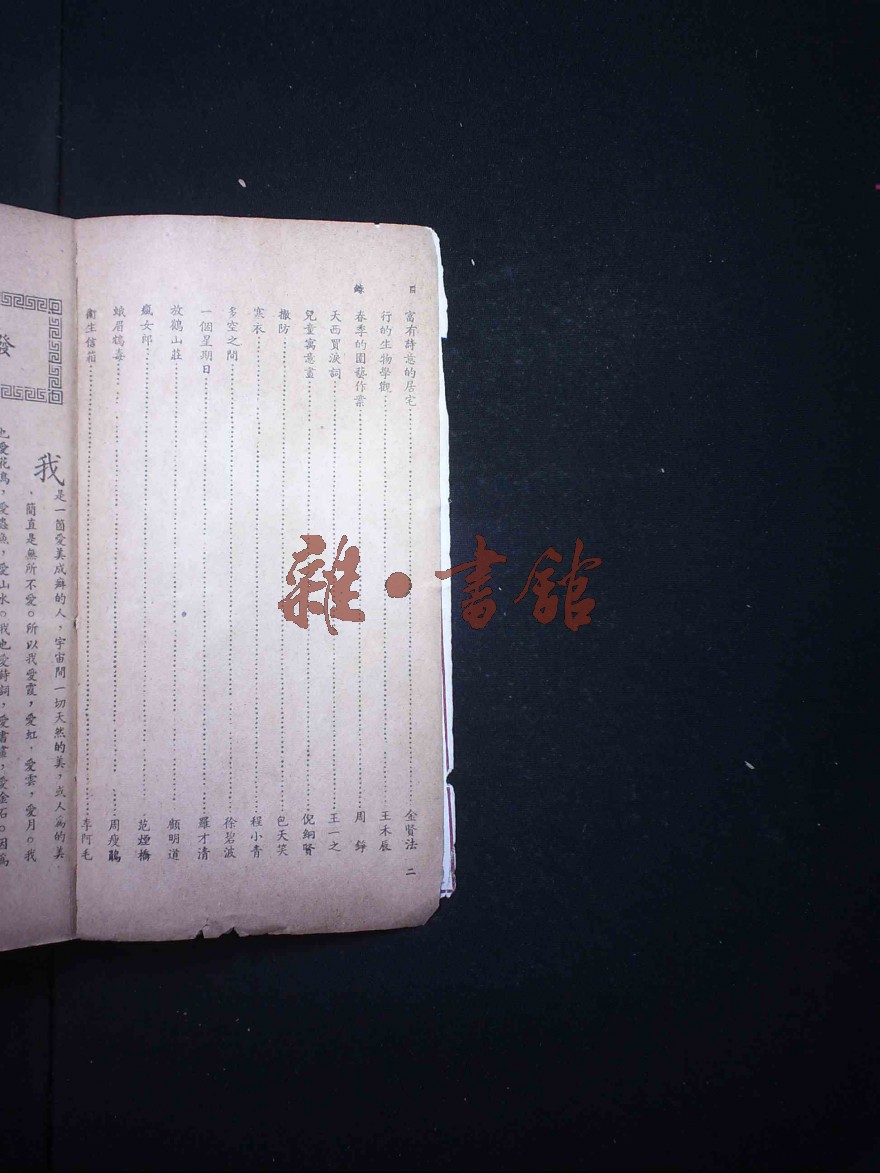 目 錄 二
富有詩意的居宅 金賢法
行的生物學觀 王禾辰
春季的園藝作業 周錚
天西買淚詞 王一之
兒童寓意畫 倪絅賢
撤防 包天笑
寒衣 程小青
多空之間 徐碧波
一個星期日 羅才清
放鶴山莊 顧明道
瘋女郎 范煙橋
蛾眉鴆毒 周瘦鵑
衞生信箱 李阿毛
發
我是一箇愛美成癖的人，宇宙間一切天然的美，或人爲的美
，簡直是無所不愛。所以我愛霞，愛虹，愛雲，愛月。我
也愛花鳥，愛蟲魚，愛山水。我也愛詩詞，愛書畫，愛金石。因爲
雜·書館